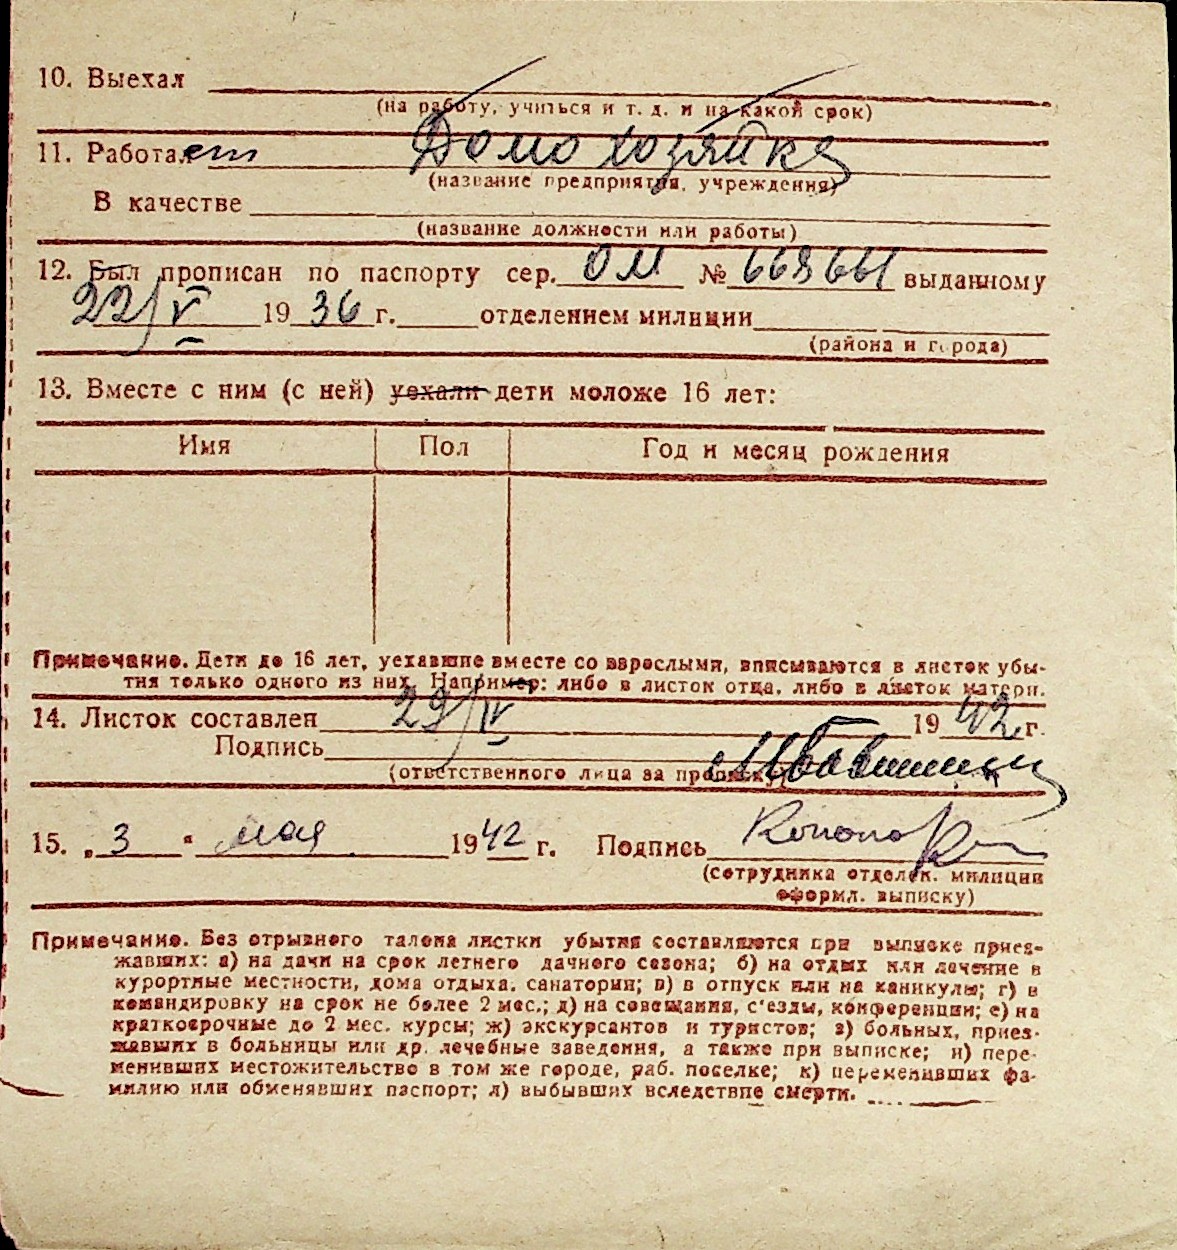 10. Выехал
(на работу, учиться и т. д. и на какой срок)
11. Работает Домохозяйка
(название предприятия, учреждения)
В качестве
(название должности или работы)
12. Был прописан по паспорту сер. ОМ № 668661 выданному
22/V 1936 г. отделением милиции
(района и города)
13. Вместе с ним (с ней) уехали дети моложе 16 лет:
Имя Пол Год и месяц рождения
Примечание. Дети до 16 лет, уехавшие вместе со взрослыми, вписываются в листок убы-
тия только одного из них. Например: либо в листок отца, либо в листок матери.
14. Листок составлен 29/IV 1942 г.
Подпись
(ответственного лица за прописку)
15. „3“ мая 1942 г. Подпись
(сотрудника отделен. милиции
оформл. выписку)
Примечание. Без отрывного талона листки убытия составляются при выписке приез-
жавших: а) на дачи на срок летнего дачного сезона; б) на отдых или лечение в
курортные местности, дома отдыха, санатории; в) в отпуск или на каникулы; г) в
командировку на срок не более 2 мес.; д) на совещания, с'езды, конференции; е) на
краткосрочные до 2 мес. курсы; ж) экскурсантов и туристов; з) больных, приез-
жавших в больницы или др. лечебные заведения, а также при выписке; и) пере-
менивших местожительство в том же городе, раб. поселке; к) переменивших фа-
милию или обменявших паспорт; л) выбывших вследствие смерти.